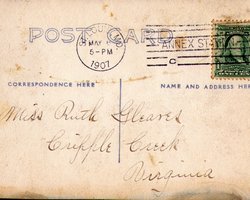 POST CARD
ST. LOUIS, MO.
MAY
5-PM
1907
ANNEX STA
C
CORRESPONDENCE HERE
NAME AND ADDRESS HERE
Miss Ruth Gleaves
Cripple Creek
Virginia